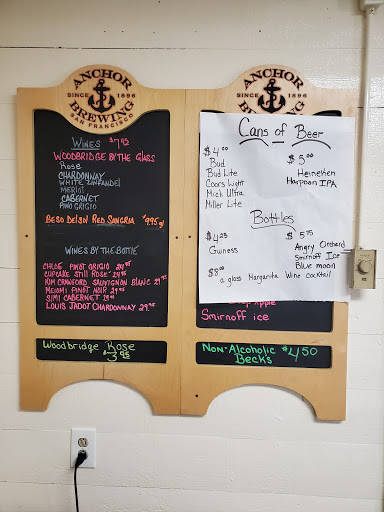 ANCHOR
SINCE 1896
BREWING
SAN FRANCISCO
WINES $7.95
WOODBRIDGE BY THE GLASS
Rose
CHARDONNAY
WHITE ZINFANDEL
MERLOT
CABERNET
PINO GRIGIO
BESO DELSOL RED SANGRIA $7.95 gl
WINES BY THE BOTTLE
CHLOE PINOT GRIGIO 29.95
CUPCAKE STILL ROSE' 29.95
KIM CRAWFORD SAUVIGNON BLANC 29.95
MEIOMI PINOT NOIR 29.95
SIMI CABERNET 29.95
LOUIS JADOT CHARDONNAY 29.95
Woodbridge Rose
ANCHOR
SINCE 1896
BREWING
Cans of Beer
$4.00
Bud
Bud Lite
Coors Light
Mich Ultra
Miller Lite
$5.00
Heineken
Harpoon IPA
Bottles
$4.25
Guiness
$5.75
Angry Orchard
Smirnoff Ice
Blue moon
$8.00
a glass Margarita Wine Cocktail
Apple
Smirnoff ice
Non-Alcoholic $4.50
Beck's